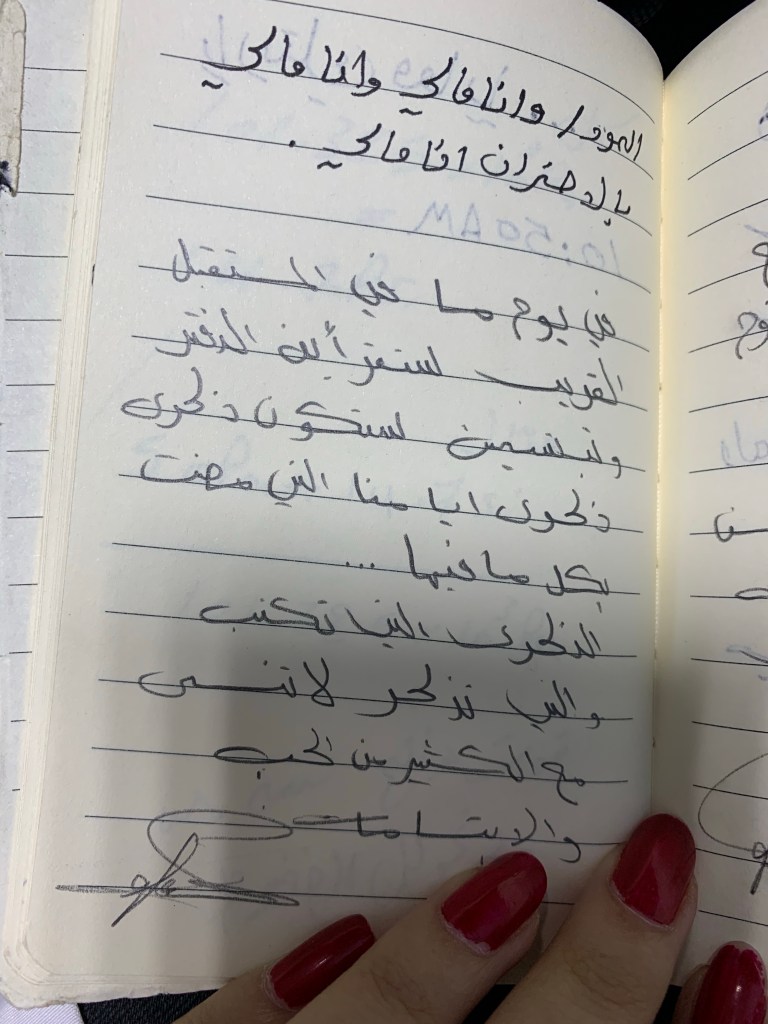 المود/ وانا مالي وانا مالي
بالدحتران انا مالي .
في يوم ما في المستقبل
القريب ستقرأين الدفتر
وتبتسمين ستكون ذكرى
ذكرى ايامنا التي مضت
بكل ما فيها ...
الذكرى التي تكتب
والتي تذكر لا تنسى
مع الكثير من الحب
والابتسامات